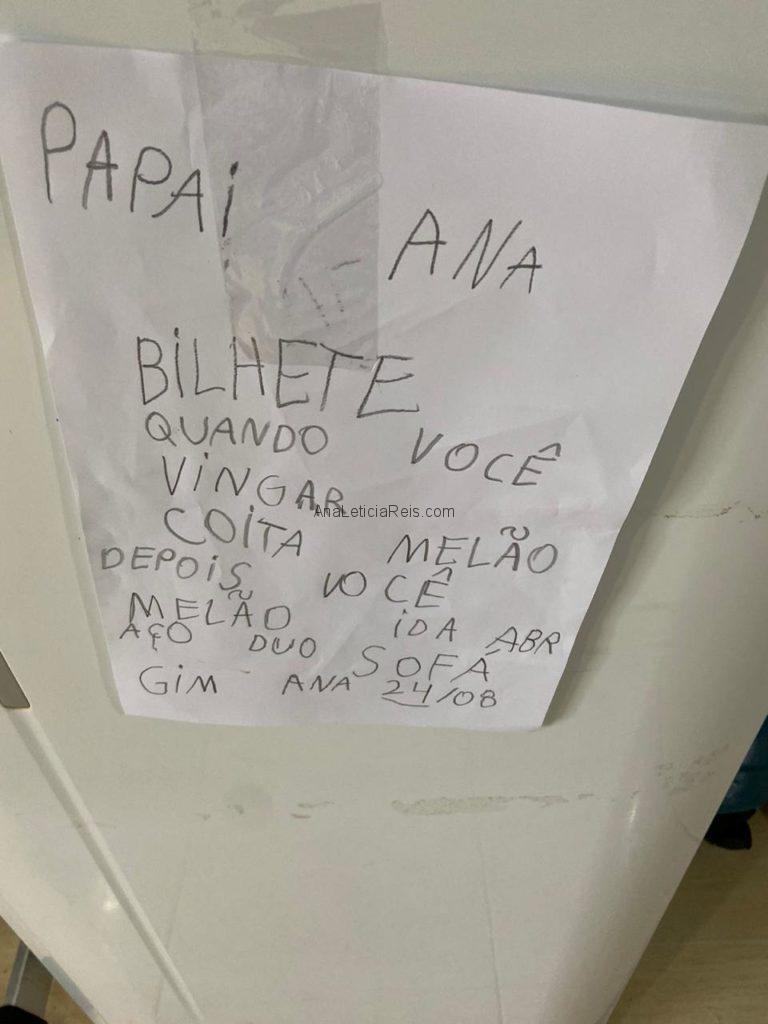 PAPAi
ANA
BiLHETE
QUANDO VOCÊ
ViNGAR
COiTA MELÃO
DEPOiS VOCÊ
MELÃO iDA ABR
AÇO DUO SOFÁ
GiM - ANA 24/08
AnaLeticiaReis.com